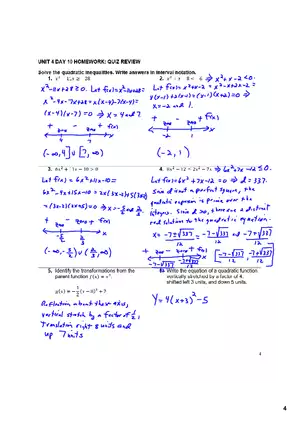 UNIT 4 DAY 10 HOMEWORK: QUIZ REVIEW
Solve the quadratic inequalities. Write answers in interval notation.
1. x² - 11x ≥ -28
x² - 11x + 28 ≥ 0. Let f(x) = x² - 11x + 28 =
x² - 4x - 7x + 28 = x(x-4) - 7(x-4) =
(x-4)(x-7) = 0 → x = 4 and 7
+ zero - zero + f(x)
4 7
(-∞, 4] ∪ [7, ∞)
2. x² + x - 8 < -6 → x² + x - 2 < 0.
Let f(x) = x² + x - 2 = x² - x + 2x - 2 =
x(x-1) + 2(x-1) = (x-1)(x+2) = 0 →
x = -2 and 1.
+ zero - zero + f(x)
-2 1
(-2, 1)
3. 6x² + 11x - 10 > 0
Let f(x) = 6x² + 11x - 10 =
6x² - 4x + 15x - 10 = 2x(3x-2) + 5(3x-2)
= (3x-2)(2x+5) = 0 → x = -5/2 and 2/3
+ zero - zero + f(x)
-5/2 2/3
(-∞, -5/2) ∪ (2/3, ∞)
4. → 6x² + 7x - 12 ≤ 0
Let f(x) = 6x² + 7x - 12 → d = 337.
Since d isn't a perfect square, the
quadratic expression is prime over the
integers. Since d > 0, there are 2 distinct
real solutions to the quadratic equation.
x = (-7 ± √337)/12 = (-7 - √337)/12 and (-7 + √337)/12
+ zero - zero + f(x)
(-7-√337)/12 (-7+√337)/12
[(-7-√337)/12, (-7+√337)/12]
5. Identify the transformations from the
parent function f(x) = x².
g(x) = -1/2(x - 8)² + 7
Reflection about the x-axis,
vertical stretch by a factor of 1/2,
Translation right 8 units and
up 7 units
6. Write the equation of a quadratic function
vertically stretched by a factor of 4,
shifted left 3 units, and down 5 units.
Y = 4(x+3)² - 5
4
4